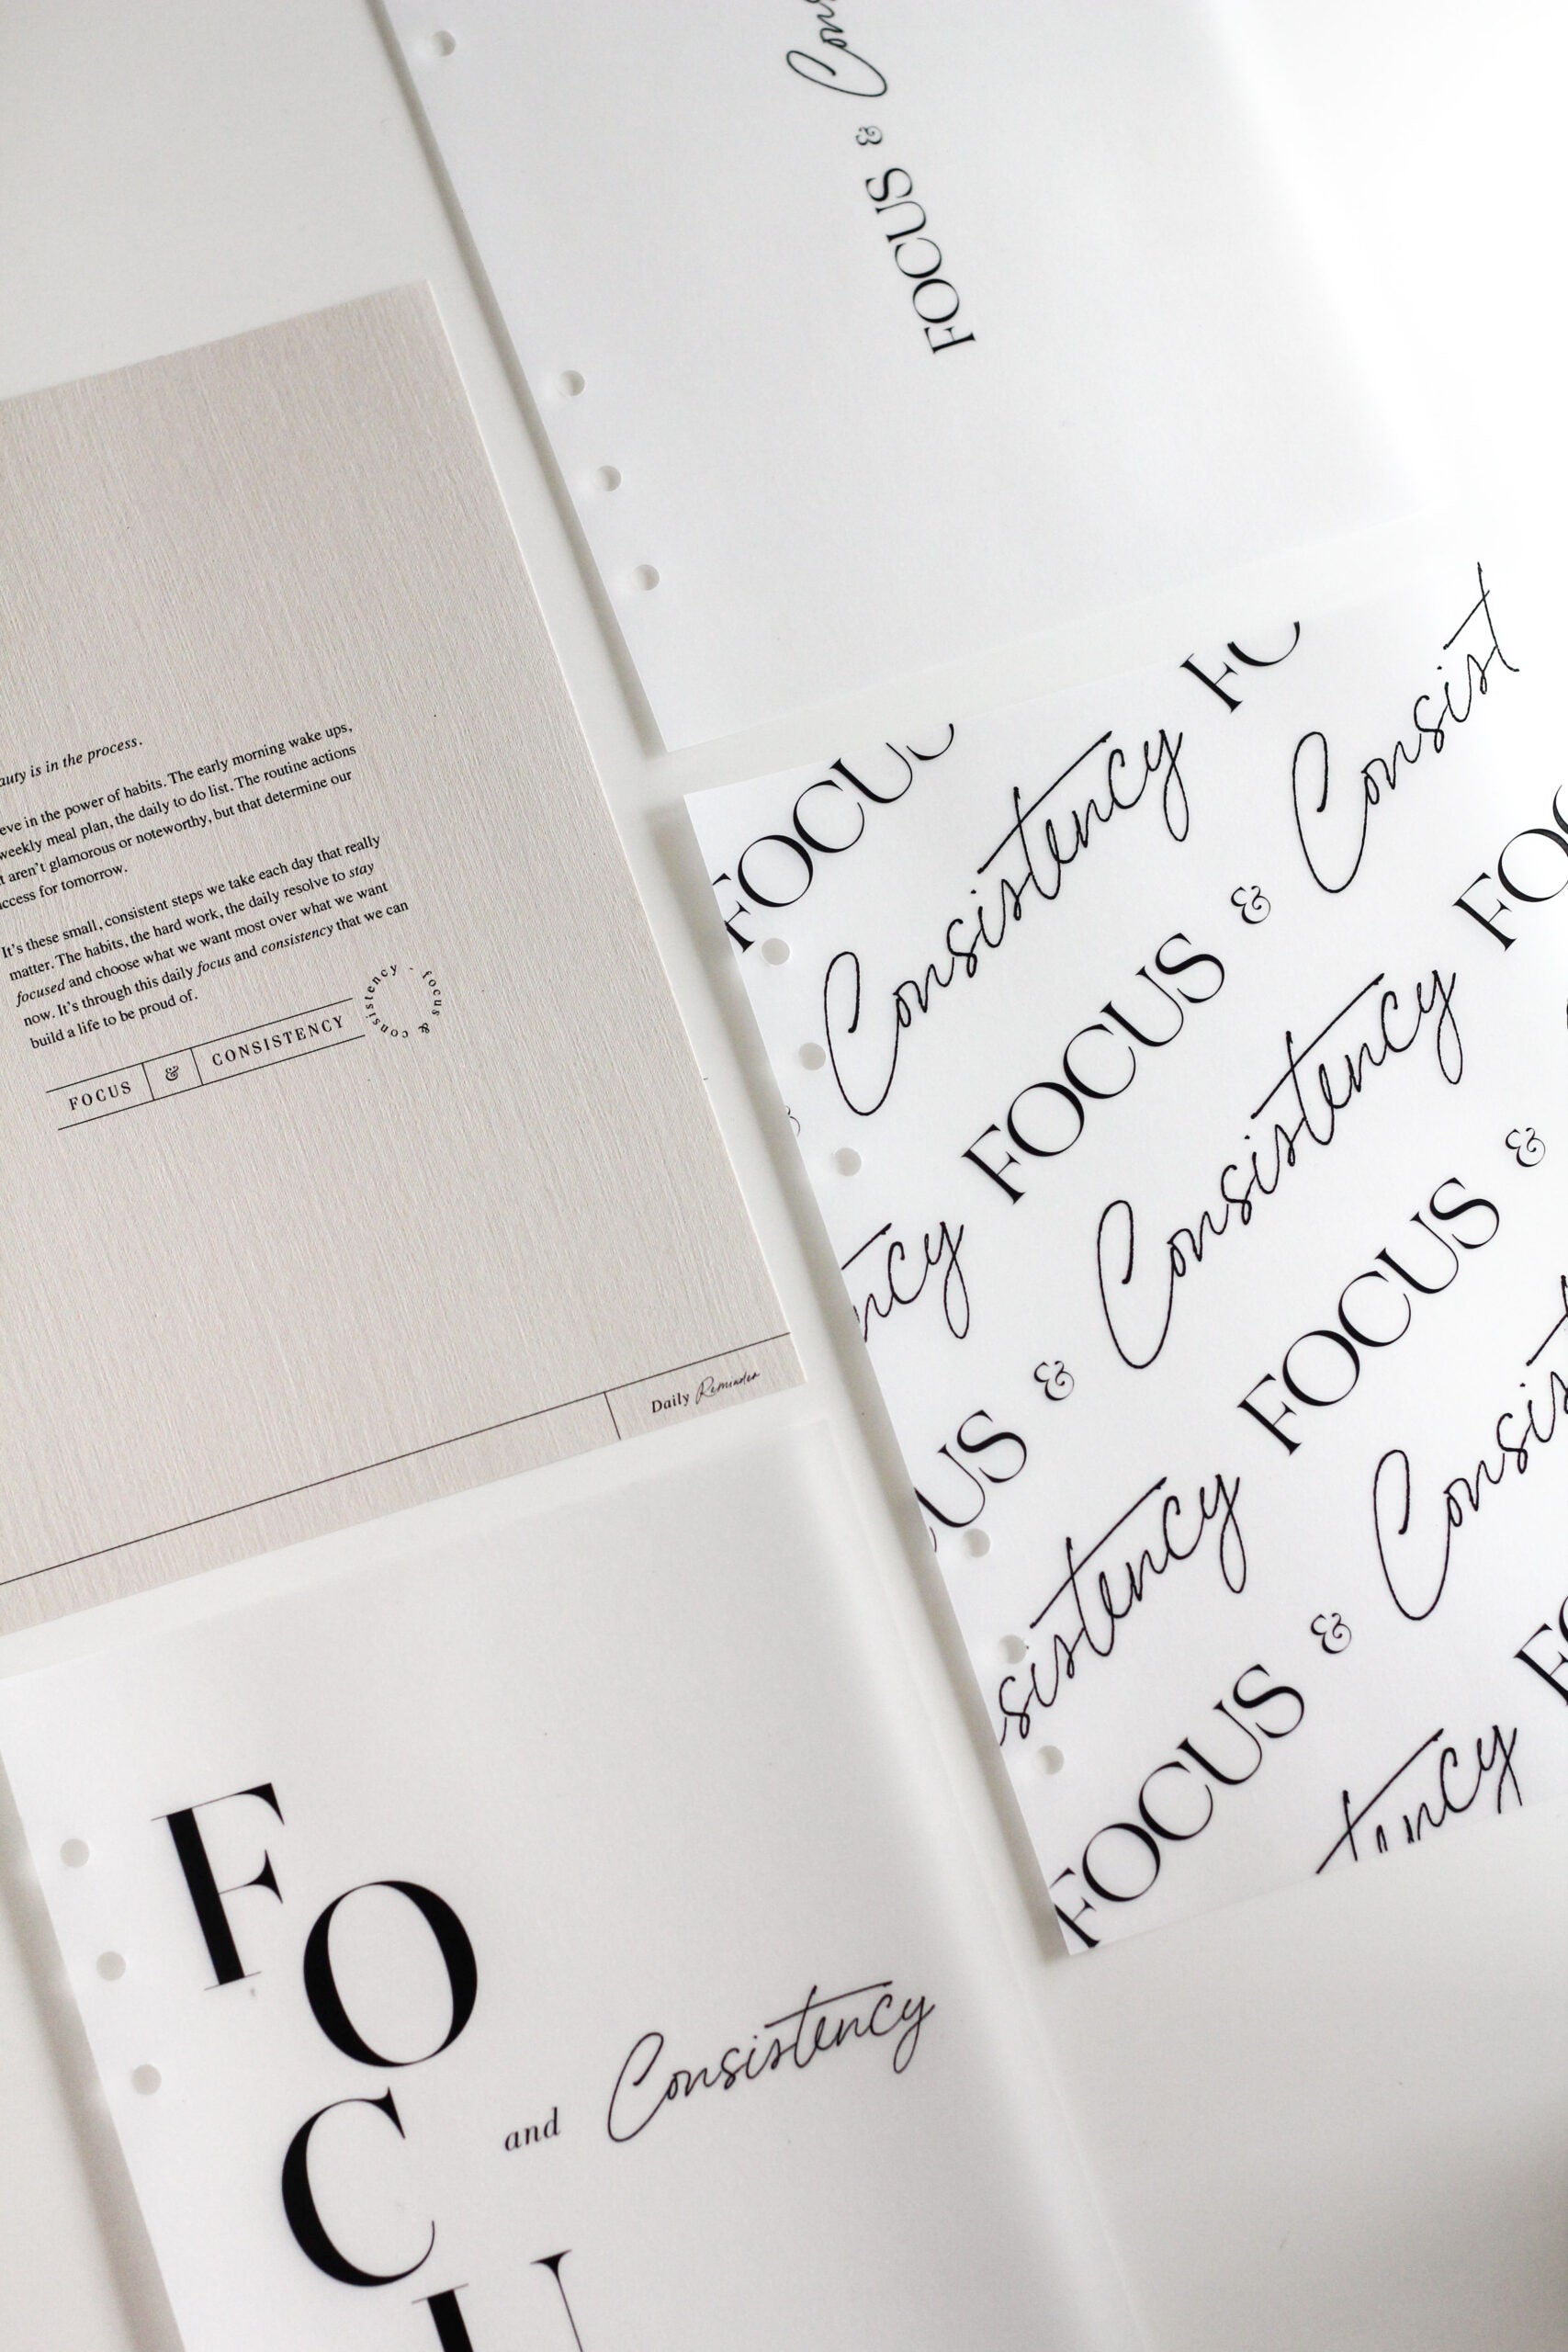 FOCUS & Con
is in the process.
in the power of habits. The early morning wake ups,
weekly meal plan, the daily to do list. The routine actions
aren't glamorous or noteworthy, but that determine our
for tomorrow.
It's these small, consistent steps we take each day that really
matter. The habits, the hard work, the daily resolve to stay
focused and choose what we want most over what we want
now. It's through this daily focus and consistency that we can
build a life to be proud of.
FOCUS & CONSISTENCY
focus & consistency
Daily Reminder
FOCU
Consistency FO
FOCUS & Consist
ncy
US & Consistency FOC
sistency FOCUS &
FOCUS & Consis
tency F
FOCU
and Consistency